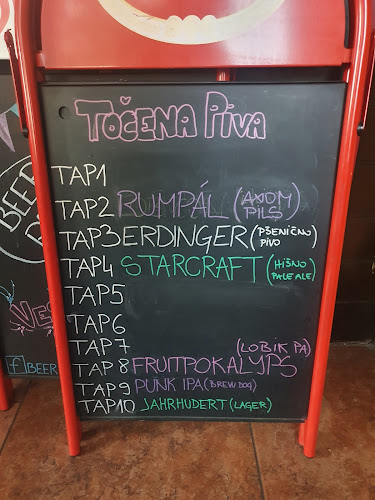 TOČENA PIVA
TAP1
TAP2 RUMPÁL (AXIOM PILS)
TAP3 ERDINGER (PŠENIČNO PIVO)
TAP4 STARCRAFT (HIŠNO PALE ALE)
TAP5
TAP6
TAP7
TAP8 FRUITPOKALYPS (LOBIK PA)
TAP9 PUNK IPA (BREW DOG)
TAP10 JAHRHUDERT (LAGER)
BEER
f BEER